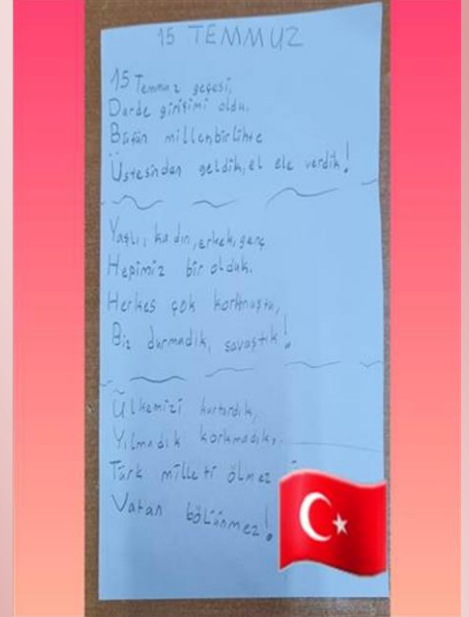 15 TEMMUZ
15 Temmuz gecesi,
Darbe girişimi oldu.
Bütün millet birlikte
Üstesinden geldik, el ele verdik!
Yaşlı, kadın, erkek, genç
Hepimiz bir olduk.
Herkes çok korkmuştu,
Biz durmadık, savaştık!
Ülkemizi kurtardık,
Yılmadık korkmadık,
Türk milleti ölmez
Vatan bölünmez!